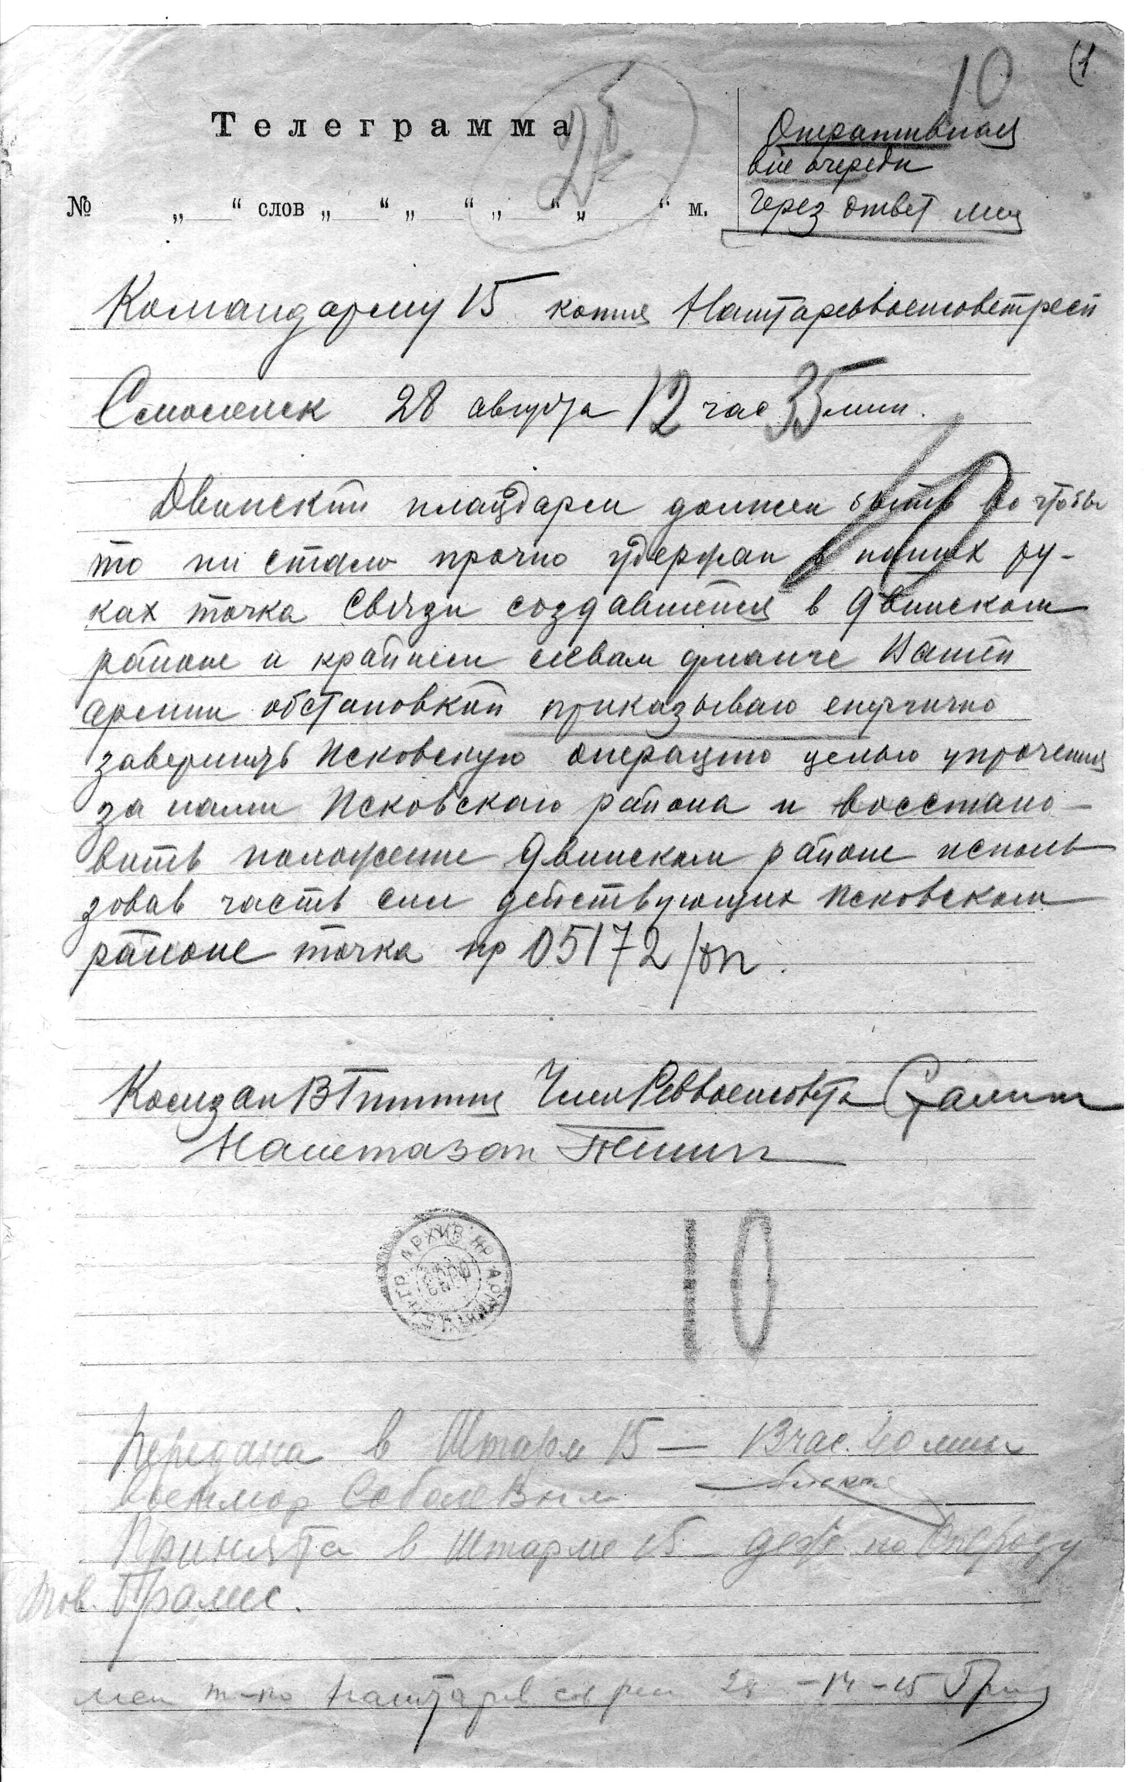 10
(1
Телеграмма
25
Оперативная
вне очереди
Через ответ
№ „ “ слов „ “ „ “ „ “ „ “ м.
Командарму 15 копия Наштареввоенсоветресп
Смоленск 28 августа 12 час 35 мин.
Двинский плацдарм должен быть во чтобы
то ни стало прочно удержан в наших ру-
ках точка Связи создавшейся в Двинском
районе и крайнем левом фланге Вашей
армии обстановкой приказываю энергично
завершить Псковскую операцию целью упрочения
за нами Псковского района и восстано-
вить положение Двинском районе исполь
зовав часть сил действующих Псковском
районе точка нр 05172/оп.
Комзап ВГиттис Член Реввоенсовета Сталин
Наштазап Петин
АРХИВ КР. АРМИИ
10
Передана в Штарм 15 — 13 час. 40 мин
Военмор Соболевым
Принята в Штарме 15 — деж. по
тов.
28 – 14 – 15